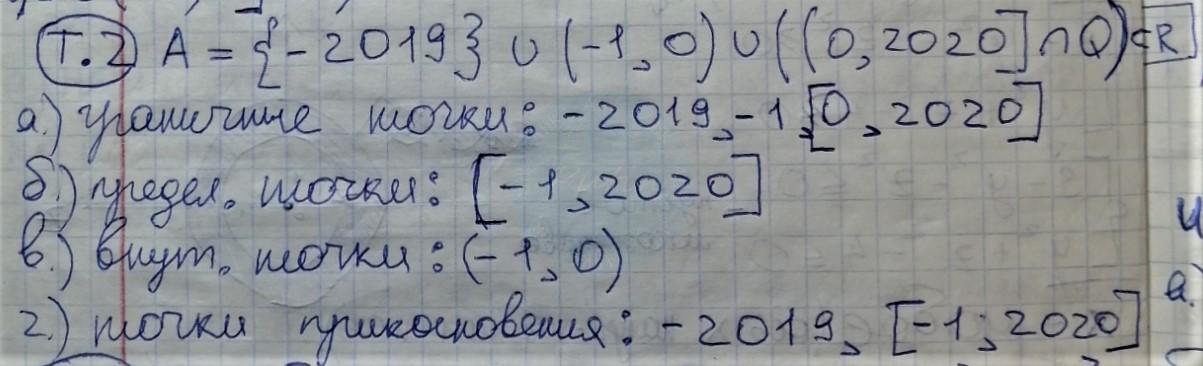 Т.2 A = {-2019} ∪ (-1, 0) ∪ ((0, 2020] ∩ Q) ⊂ R
а.) граничные точки: -2019, -1, [0, 2020]
б.) предел. точки: [-1, 2020]
в.) внут. точки: (-1, 0)
г.) точки прикосновения: -2019, [-1; 2020]